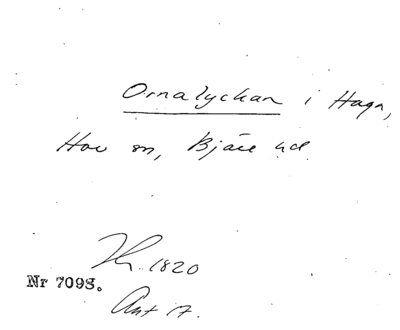 Ornalyckan i Haga,
Hov sn, Bjäre hd
1820
Nr 7098.
Ant 17.